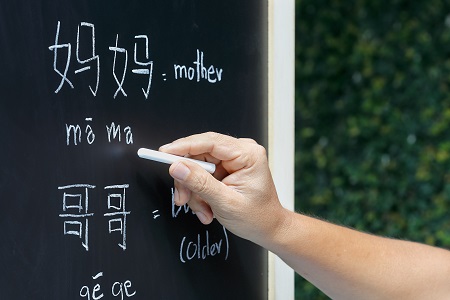 妈妈 = mother
mā ma
哥哥 =
(older)
gē ge